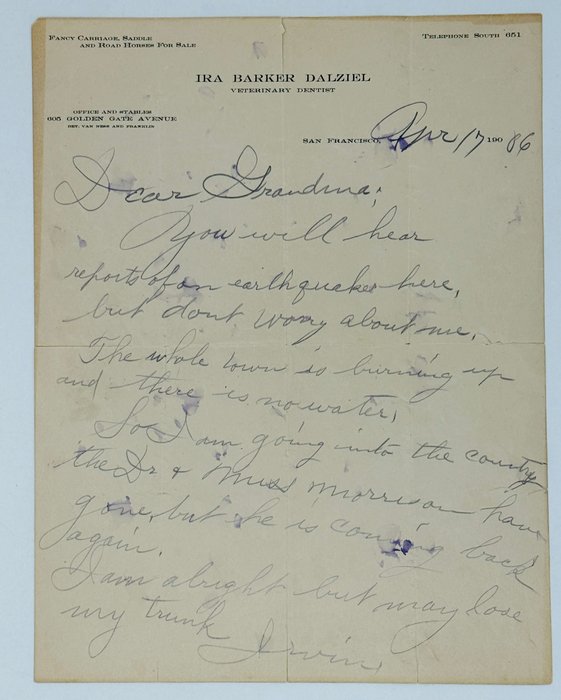 Fancy Carriage, Saddle
and Road Horses For Sale
Telephone South 651
IRA BARKER DALZIEL
VETERINARY DENTIST
OFFICE AND STABLES
605 GOLDEN GATE AVENUE
BET. VAN NESS AND FRANKLIN
SAN FRANCISCO, Apr 17 190 06
Dear Grandma;
You will hear
reports of an earthquake here,
but dont worry about me.
The whole town is burning up
and there is no water,
So I am going into the country
the Dr & Miss Morrison have
gone, but he is coming back
again.
I am alright but may lose
my trunk
Irvin